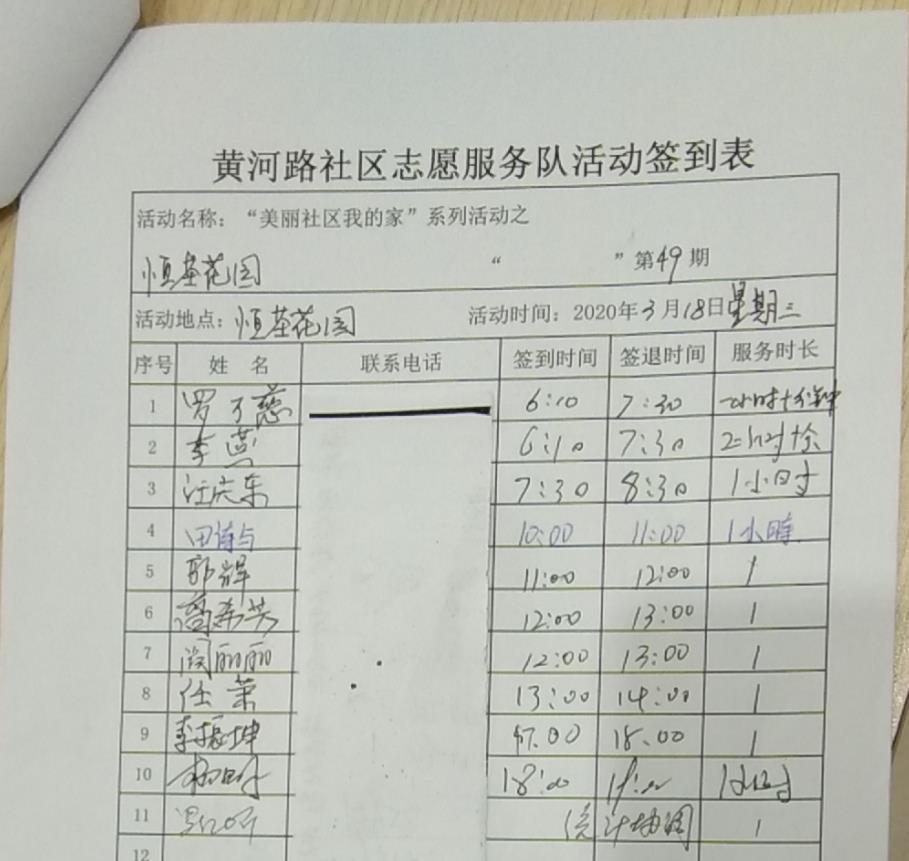 黄河路社区志愿服务队活动签到表
活动名称：“美丽社区我的家”系列活动之
恒基花园 “ ”第49期
活动地点：恒基花园 活动时间：2020年3月18日星期三
序号 姓 名 联系电话 签到时间 签退时间 服务时长
1 罗了慈 6:10 7:30 一小时十分钟
2 李燕 6:10 7:30
3 汪庆东 7:30 8:30 1小时
4 田 10:00 11:00 1小時
5 郭辉 11:00 12:00 1
6 高秀芳 12:00 13:00 1
7 闫丽丽 12:00 13:00 1
8 任萧 13:00 14:00 1
9 李振坤 17.00 18.00 1
10 18:00 1小时
11 统计协调 1
12